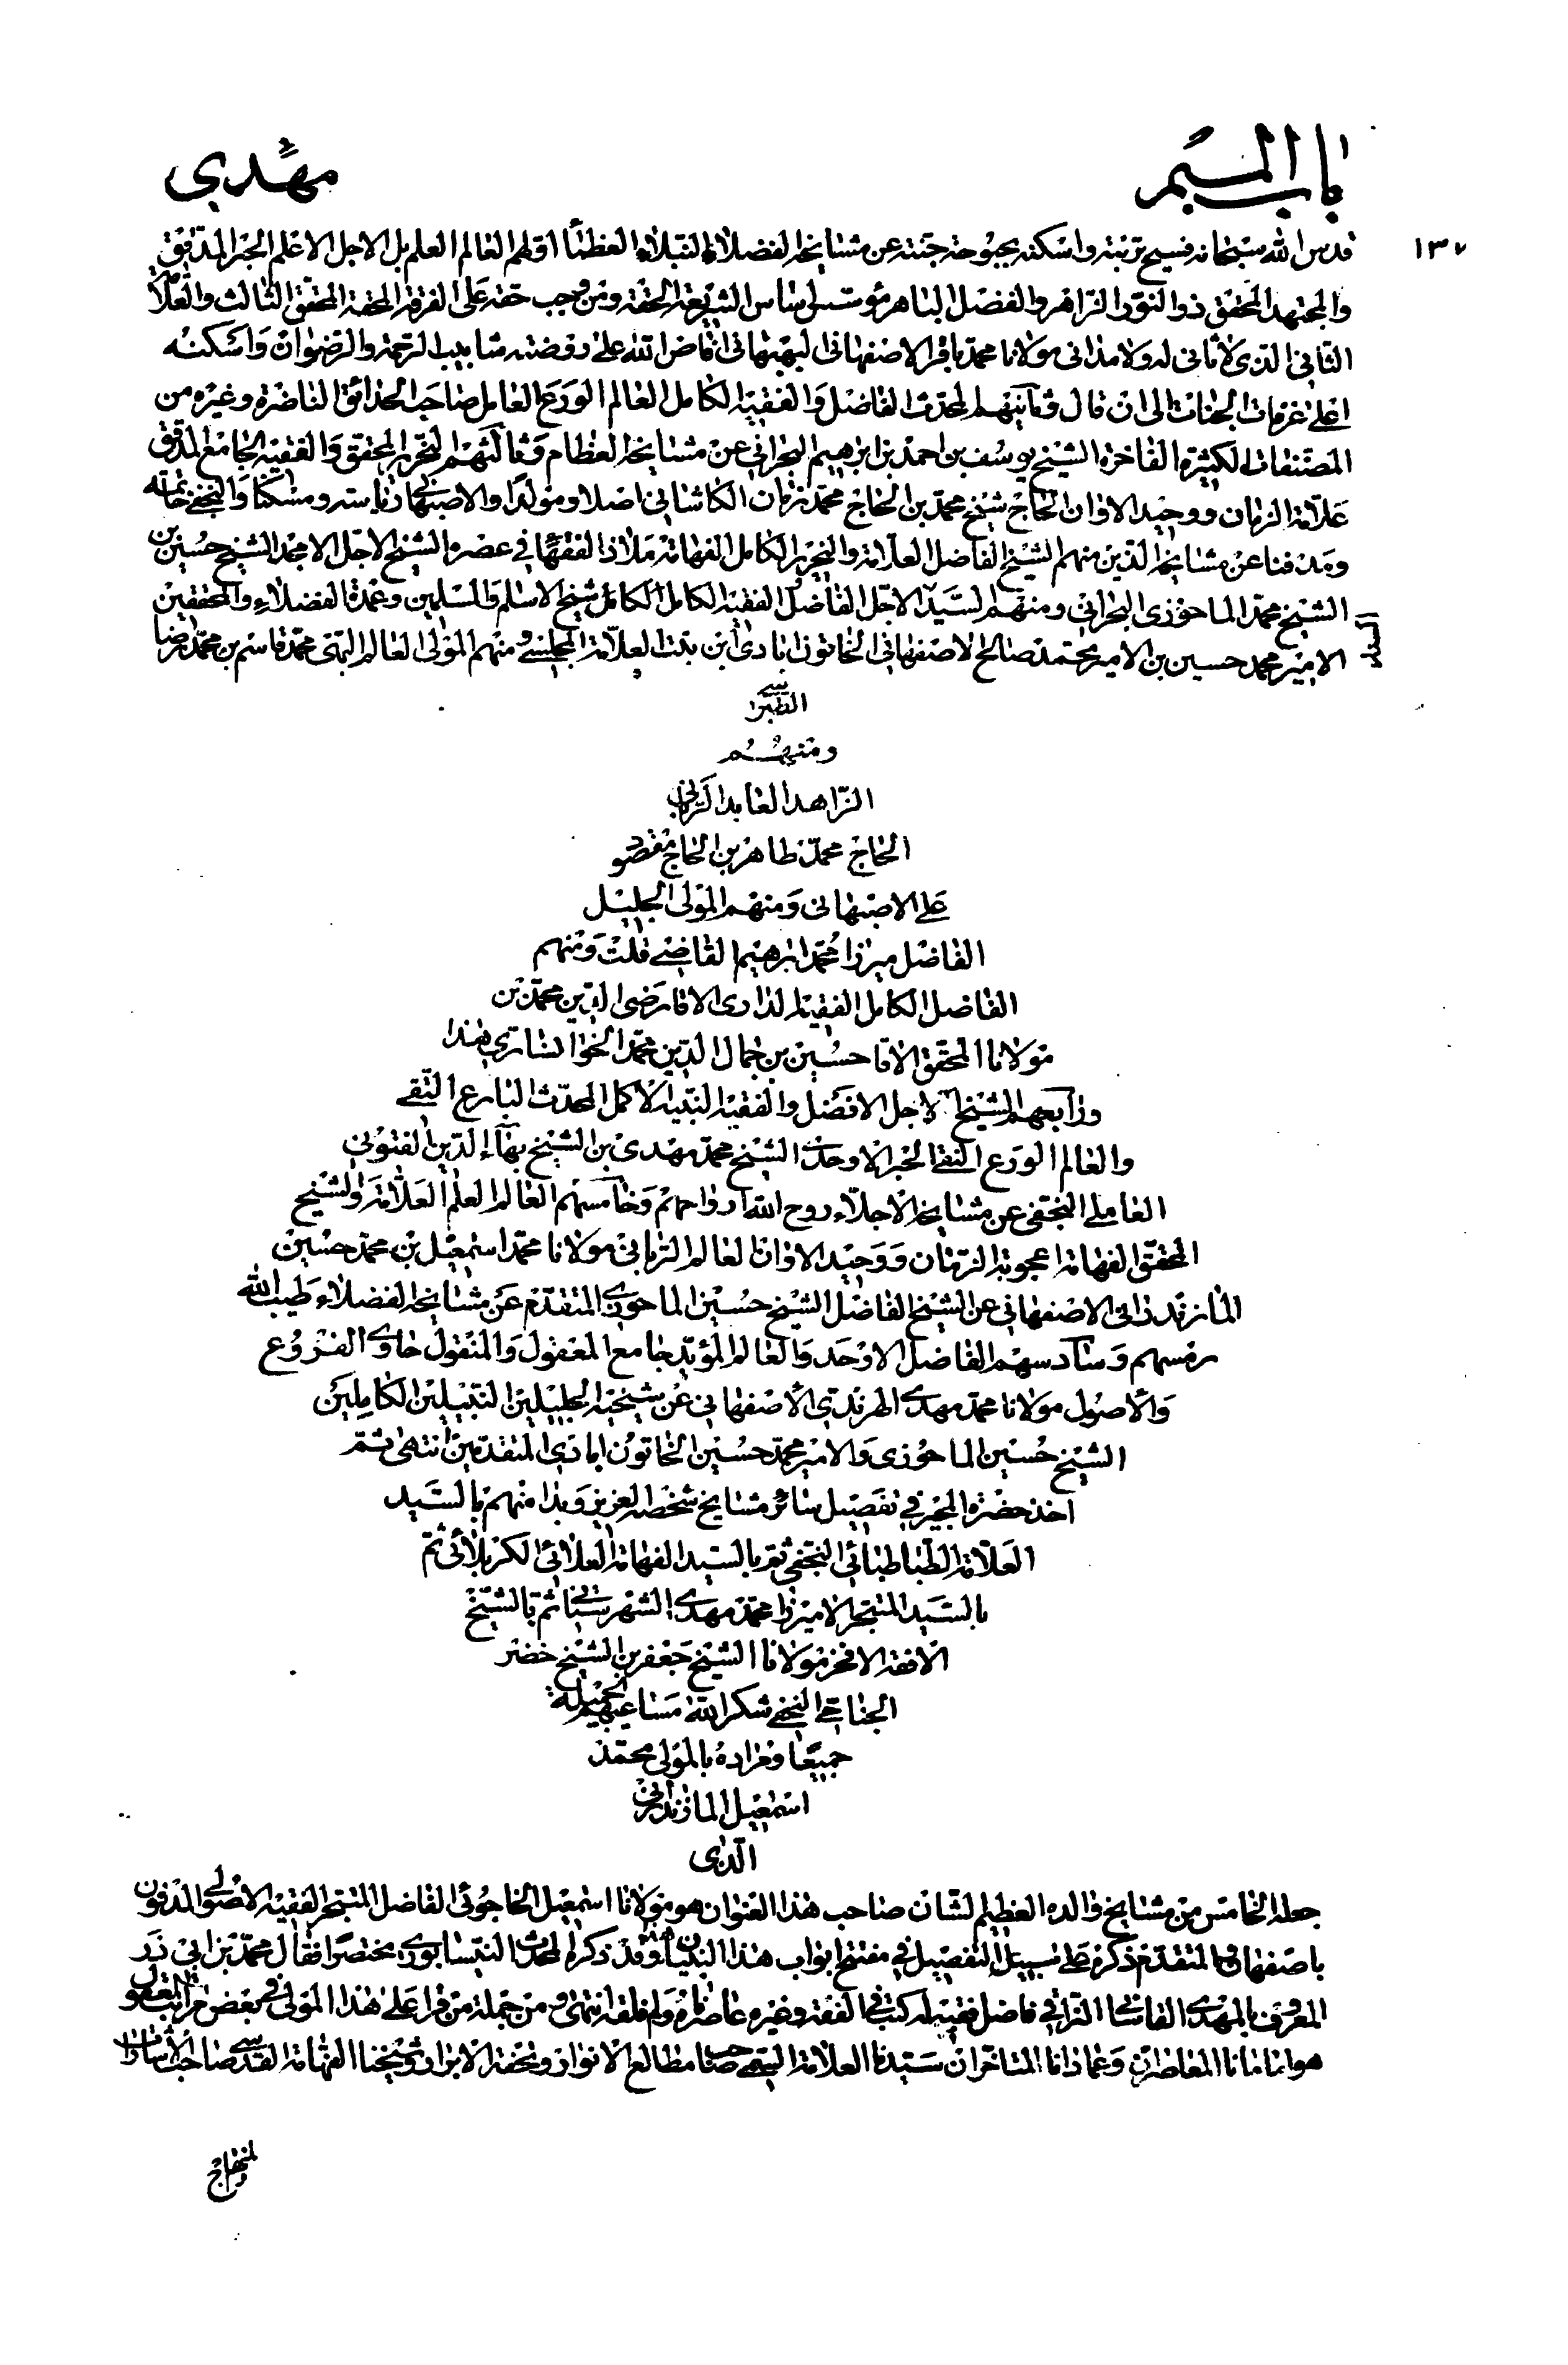 باب الميم
مهدي
١٣٧
قدس الله سبحانه فسيح تربته واسكنه بحبوحة جنته عن مشايخه الفضلاء النبلاء العظماء اولهم العالم العلم بل الاجل الاعلم الحبر المدقق
والمجتهد المحقق ذو النور الزاهر والفضل الباهر مؤسس اساس الشريعة الحقة ومن وجب حقه على الفرقة المحقة المحقق الثالث والعلامة
الثاني الذي لا ثاني له ولا مداني مولانا محمد باقر الاصفهاني البهبهاني افاض الله على روضته شابيب الرحمة والرضوان واسكنه
اعلى غرفات الجنان الى ان قال وثانيهم المحدث الفاضل والفقيه الكامل العالم الورع العامل صاحب الحدائق الناضرة وغيره من
المصنفات الكثيرة الفاخرة الشيخ يوسف بن احمد بن ابرهيم البحراني عن مشايخه العظام وثالثهم النحرير المحقق والفقيه الجامع المدقق
علامة الزمان ووحيد الاوان الحاج شيخ محمد بن الحاج محمد زمان الكاشاني اصلا ومولدا والاصبهاني رياسة ومسكنا والنجفي خاتمة
ومدفنا عن مشايخه الذين منهم الشيخ الفاضل العلامة والنحرير الكامل الفهامة ملاذ الفقهاء في عصره الشيخ الاجل الامجد الشيخ حسين بن
الشيخ محمد الماحوزى البحراني ومنهم السيد الاجل الفاضل والفقيه الكامل شيخ الاسلام والمسلمين وعمدة الفضلاء والمحققين
الامير محمد حسين بن الامير محمد صالح الاصفهاني الخاتون ابادى ابن بنت العلامة المجلسي ومنهم المولى العالم التقى محمد قاسم بن محمد رضا
الطبرسي
ومنهم
الزاهد العابد الرباني
الحاج محمد طاهر بن الحاج مقصود
على الاصبهانى ومنهم المولى الجليل
الفاضل ميرزا محمد ابرهيم القاضي قلت ومنهم
الفاضل الكامل الفقيه الدارى الاقا رضى الدين محمد بن
مولانا المحقق الاقا حسين بن جمال الدين محمد الخوانسارى هذا
ورابعهم الشيخ الاجل الافضل والفقيه النبيه الاكمل المحدث البارع التقي
والعالم الورع النقي الحبر الاوحد الشيخ محمد مهدى بن الشيخ بهاء الدين الفتوني
العاملي النجفي عن مشايخه الاجلاء روح الله ارواحهم وخامسهم العالم العلم العلامة والشيخ
المحقق الفهامة اعجوبة الزمان ووحيد الاوان العالم الرباني مولانا محمد اسمعيل بن محمد حسين
المازندرانى الاصفهاني عن الشيخ الفاضل الشيخ حسين الماحوزى المتقدم عن مشايخه الفضلاء طيب الله
رمسهم وسادسهم الفاضل الاوحد والعالم المؤيد جامع المعقول والمنقول حاوى الفروع
والاصول مولانا محمد مهدى الهرندي الاصفهاني عن شيخيه الجليلين النبيلين الكاملين
الشيخ حسين الماحوزى والامير محمد حسين الخاتون ابادي المتقدمين انتهى ثم
اخذ حضرة المجيز في تفصيل سائر مشايخ شخصه العزيز وبدا منهم بالسيد
العلامة الطباطبائي النجفي ثم بالسيد الفهامة العلائى الكربلائي ثم
بالسيد المتبحر الاميرزا محمد مهدى الشهرستاني ثم بالشيخ
الافقه الافخر مولانا الشيخ جعفر بن الشيخ خضر
الجناجي النجفي شكر الله مساعيهم الجميلة
جميعا ومراده بالمولى محمد
اسمعيل المازندراني
الذى
جعله الخامس من مشايخ والده العظيم الشان صاحب هذا العنوان هو مولانا اسمعيل الخاجوئى الفاضل المتبحر الفقيه الاصولي المدفون
باصفهان المتقدم ذكره على سبيل التفصيل في مفتتح ابواب هذا البنيان وقد ذكره المحدث النيسابوري مختصرا فقال محمد بن ابي ذر
المعروف بالمهدى القاساني النراقي فاضل فقيه له كتب في الفقه وغيره عاصرناه ولم نلقه انتهى ومن جملة من قرا على هذا المولى في بعض مراتب المعقول
هو امامانا المعاصران وعمادانا المتاخران سيدنا العلامة البتي صاحب مطالع الانوار وتحفة الابرار وشيخنا الفهامة القدسي صاحب الاشارات
والمنهاج